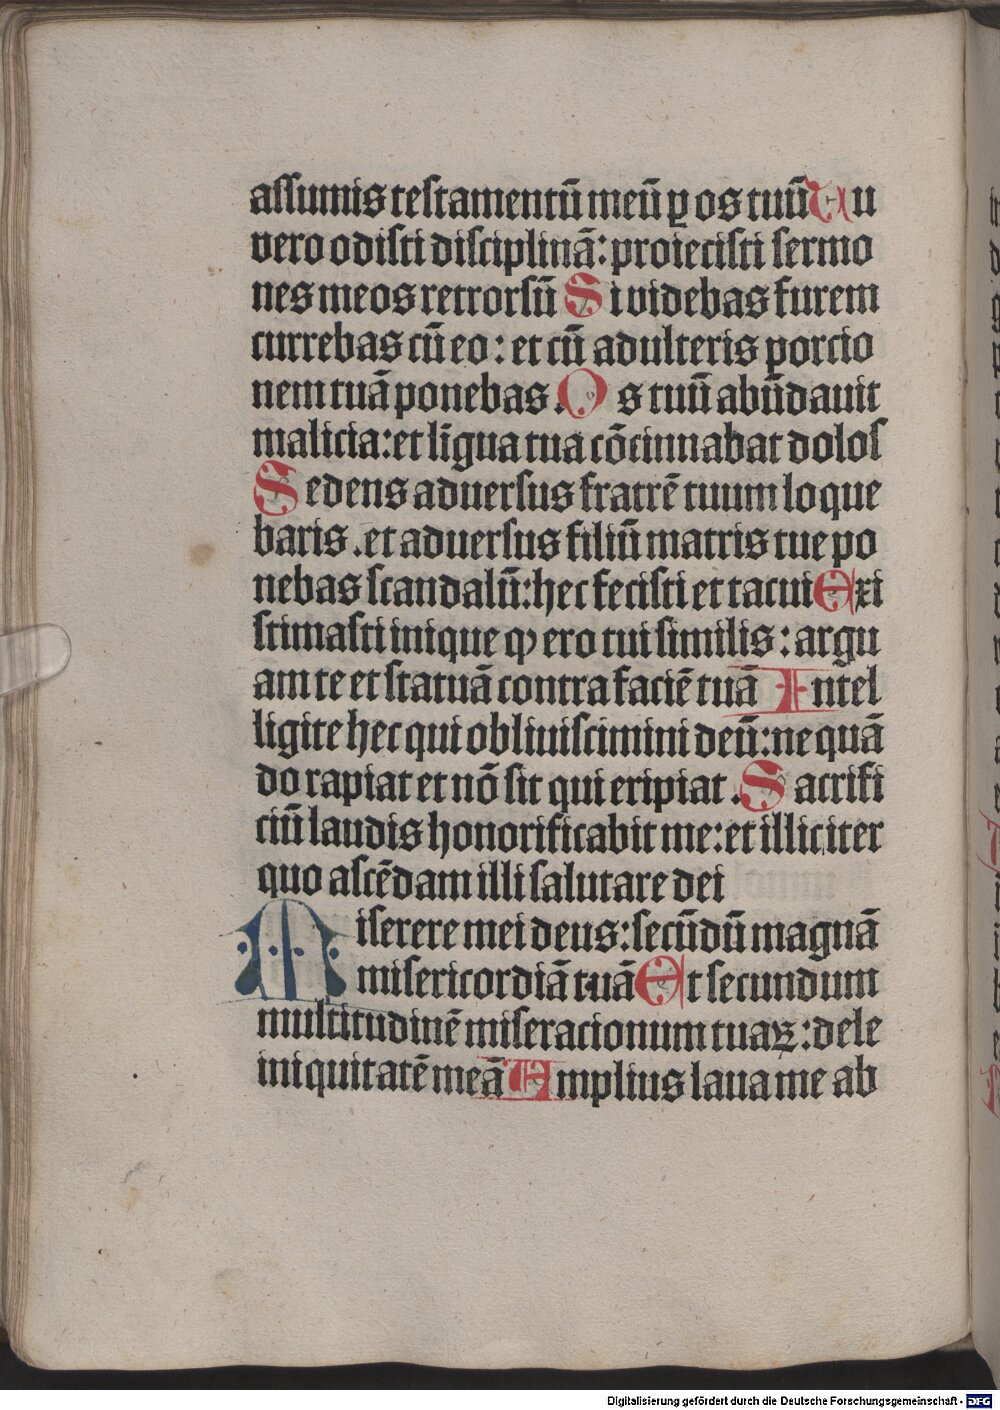 assumis testamentū meū ꝑ os tuū Tu
vero odisti disciplinā: proiecisti sermo
nes meos retrorsū Si videbas furem
currebas cū eo: et cū adulteris porcio
nem tuā ponebas. Os tuū abūdauit
malicia: et līgua tua cōcinnabat dolos
Sedens aduersus fratrē tuum loque
baris. et aduersus filiū matris tue po
nebas scandalū: hec fecisti et tacui Exi
stimasti inique ꝙ ero tui similis: argu
am te et statuā contra faciē tuā Intel
ligite hec qui obliuiscimini deū: ne quā
do rapiat et nō sit qui eripiat. Sacrifi
ciū laudis honorificabit me: et illic iter
quo ascēdam illi salutare dei
Miserere mei deus: secūdū magnā
misericordiā tuā Et secundum
multitudinē miseracionum tuaꝝ: dele
iniquitatē meā Amplius laua me ab
Digitalisierung gefördert durch die Deutsche Forschungsgemeinschaft - DFG